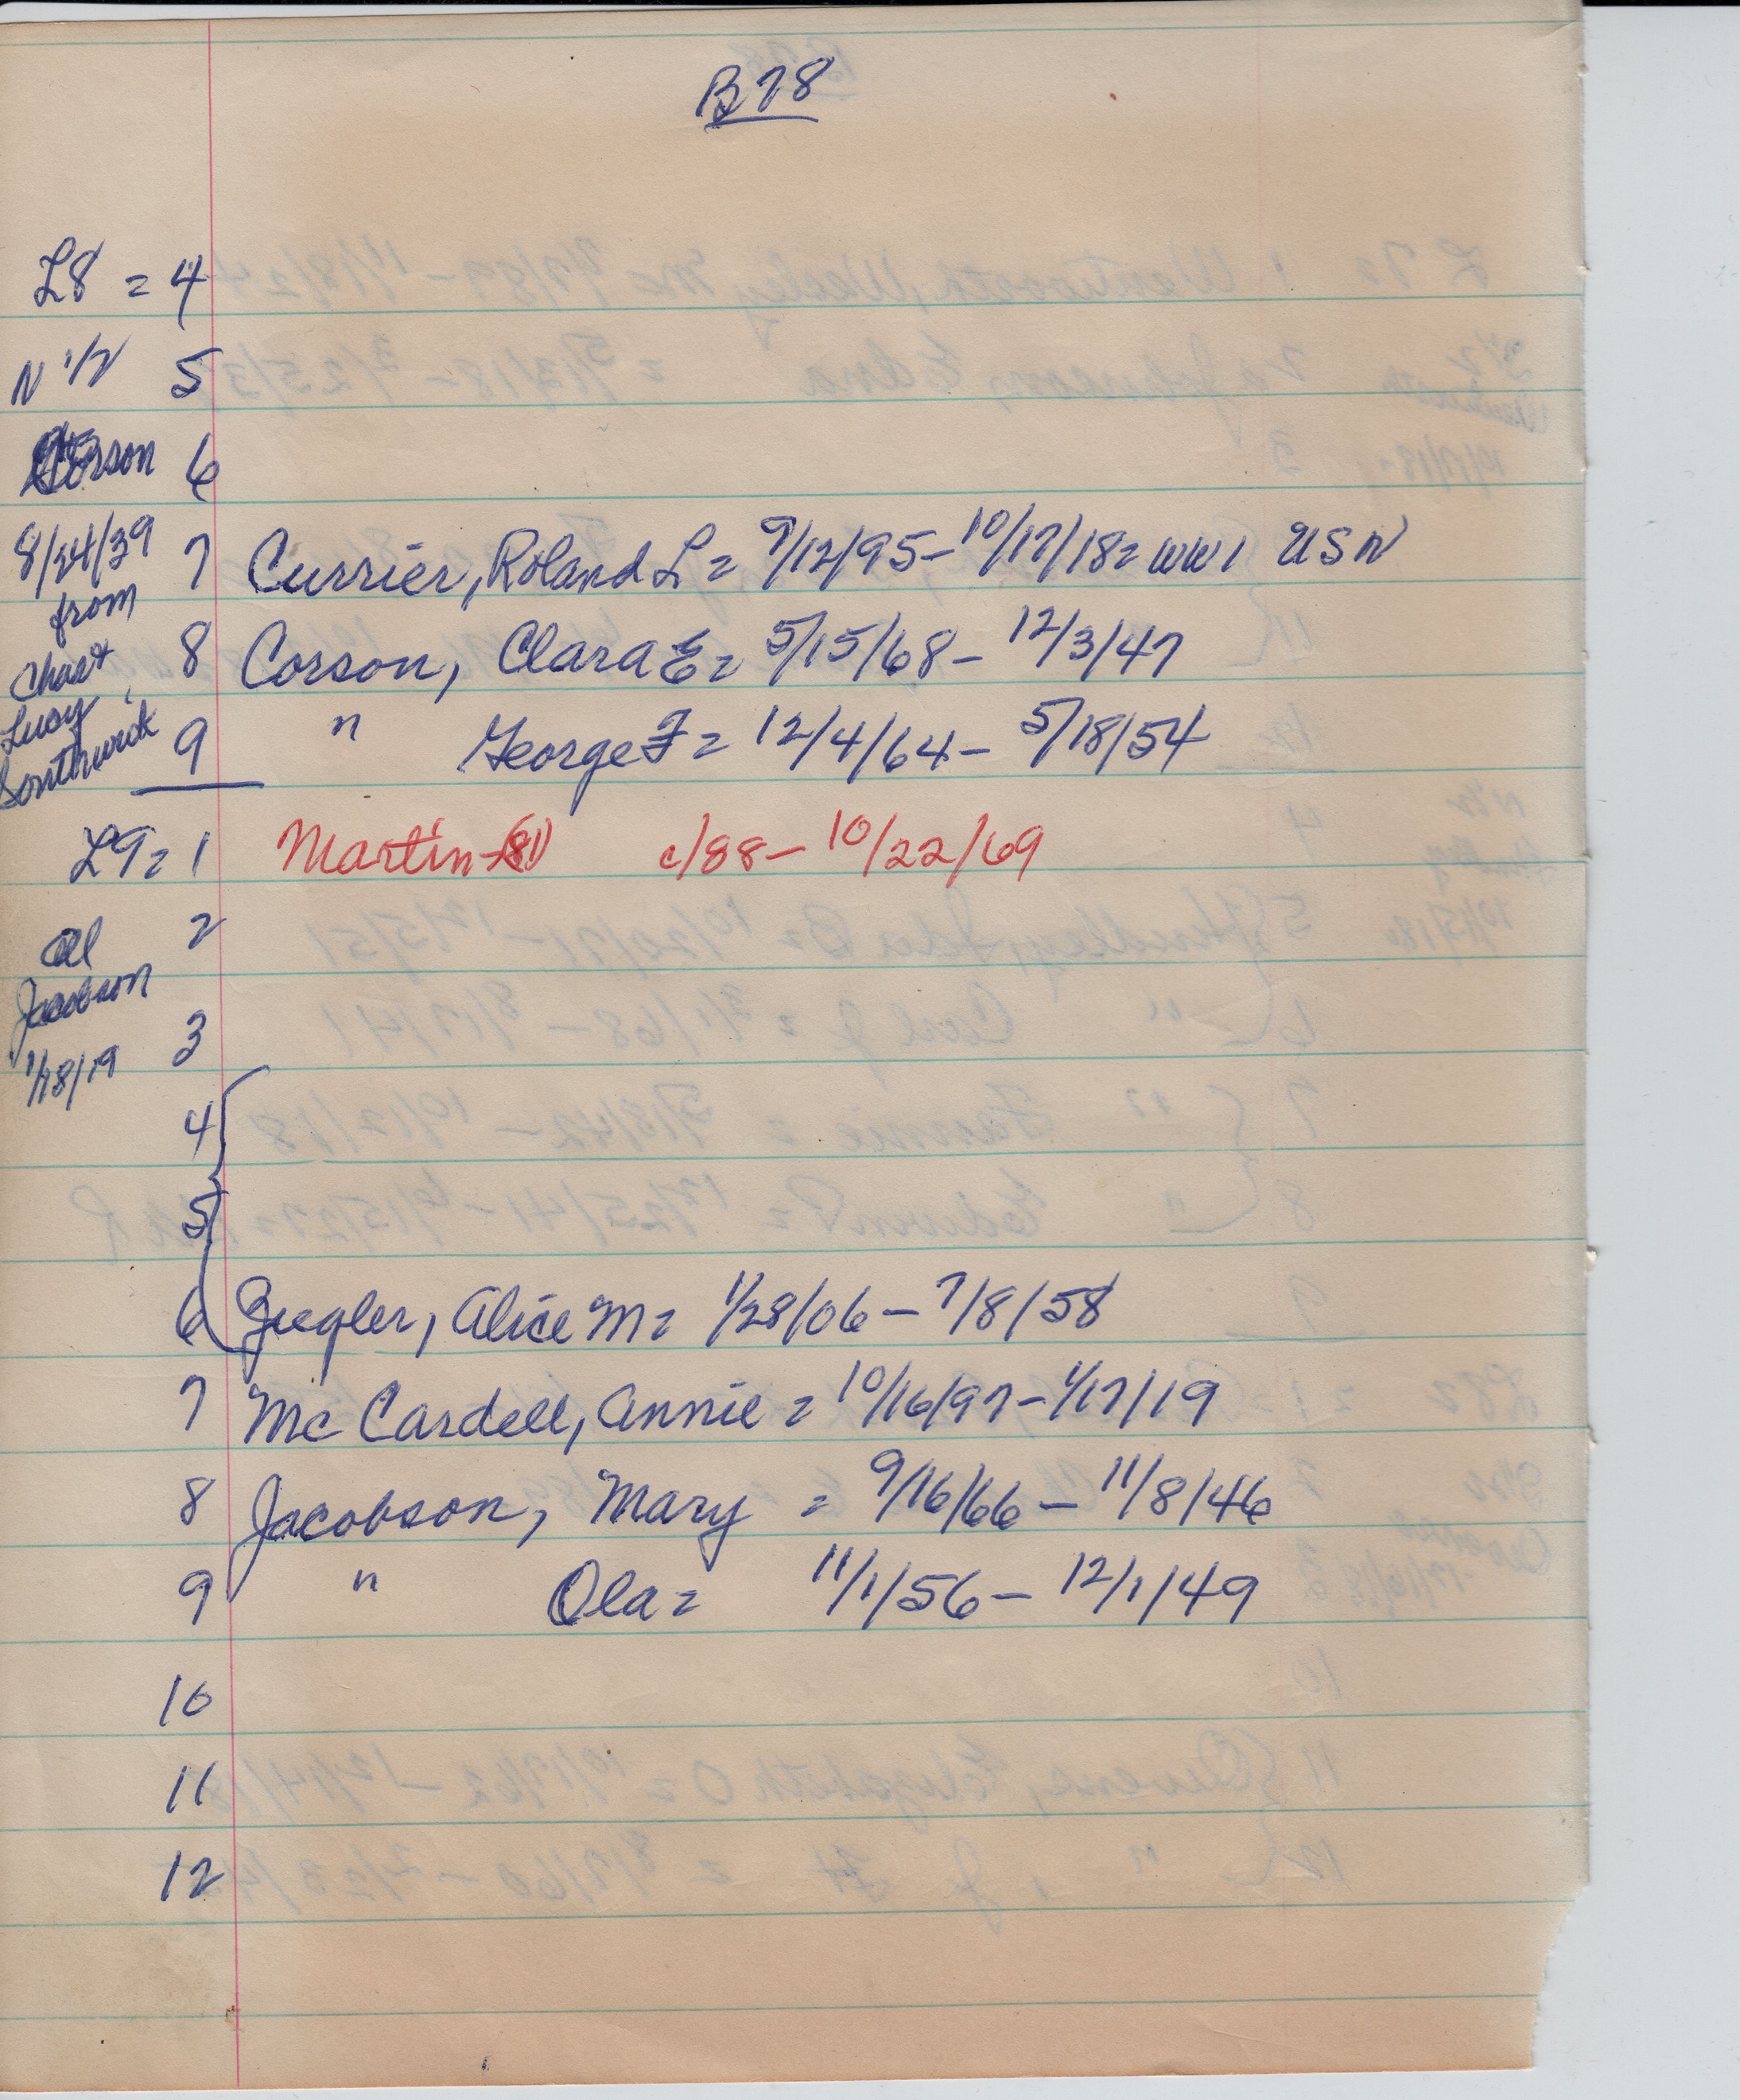 B78
L8 = 4
N 1/2 5
Corson 6
8/24/39 7 Currier, Roland L = 9/12/95 - 10/17/18 = WW1 USN
from
8 Corson, Clara E = 5/15/68 - 12/3/47
Chas +
Lucy
Southwick 9 " George F = 12/4/64 - 5/18/54
L9 = 1 Martin - (81) c/88 - 10/22/69
All 2
Jacobson
3
1/18/19
4
5
6 Alice M = 1/28/06 - 7/8/58
7 Mc Cardell, Annie = 10/16/97 - 1/17/19
8 Jacobson, Mary = 9/16/66 - 11/8/46
9 " Ola = 11/1/56 - 12/1/49
10
11
12